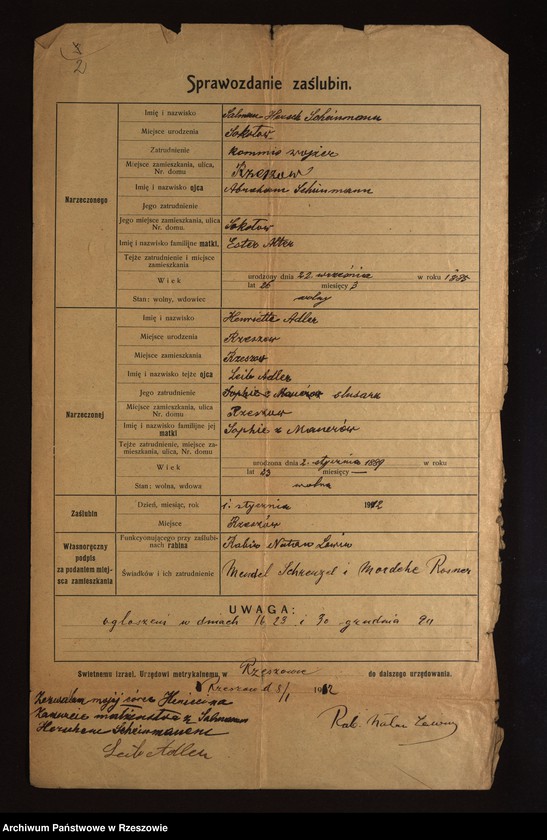 X/2
Sprawozdanie zaślubin.
Narzeczonego
Imię i nazwisko Salman Hersch Scheinmann
Miejsce urodzenia Sokołow
Zatrudnienie
Miejsce zamieszkania, ulica, Nr. domu Rzeszow
Imię i nazwisko ojca Abraham Scheinmann
Jego zatrudnienie
Jego miejsce zamieszkania, ulica Nr. domu. Sokołow
Imię i nazwisko familijne matki. Ester Alter
Tejże zatrudnienie i miejsce zamieszkania
Wiek urodzony dnia 22. września w roku 1885
lat 26 miesięcy 3
Stan: wolny, wdowiec wolny
Narzeczonej
Imię i nazwisko Henrietta Adler
Miejsce urodzenia Rzeszow
Miejsce zamieszkania Rzeszow
Imię i nazwisko tejże ojca Leib Adler
Jego zatrudnienie slusarz
Miejsce zamieszkania, ulica Nr. domu Rzeszow
Imię i nazwisko familijne jej matki Sophie z Manerów
Tejże zatrudnienie, miejsce zamieszkania, ulica, Nr. domu
Wiek urodzona dnia 2. stycznia 1889 w roku
lat 23 miesięcy —
Stan: wolna, wdowa wolna
Zaślubin
Dzień, miesiąc, rok 1. stycznia 1912
Miejsce Rzeszów
Własnoręczny podpis za podaniem miejsca zamieszkania
Funkcyonującego przy zaślubinach rabina Rabin Natan Lewin
Świadków i ich zatrudnienie Mendel Schrenzel i Mordche Rosner
UWAGA:
ogłoszeni w dniach 16 23 i 30 grudnia 911
Świetnemu izrael. Urzędowi metrykalnemu w Rzeszowie do dalszego urzędowania.
Rzeszow d 3/1 1912
Zezwalam mojej córce
małżeństwa z Salmanem
Herschem Scheinmanem
Rab. Natan Lewin
Leib Adler
Archiwum Państwowe w Rzeszowie